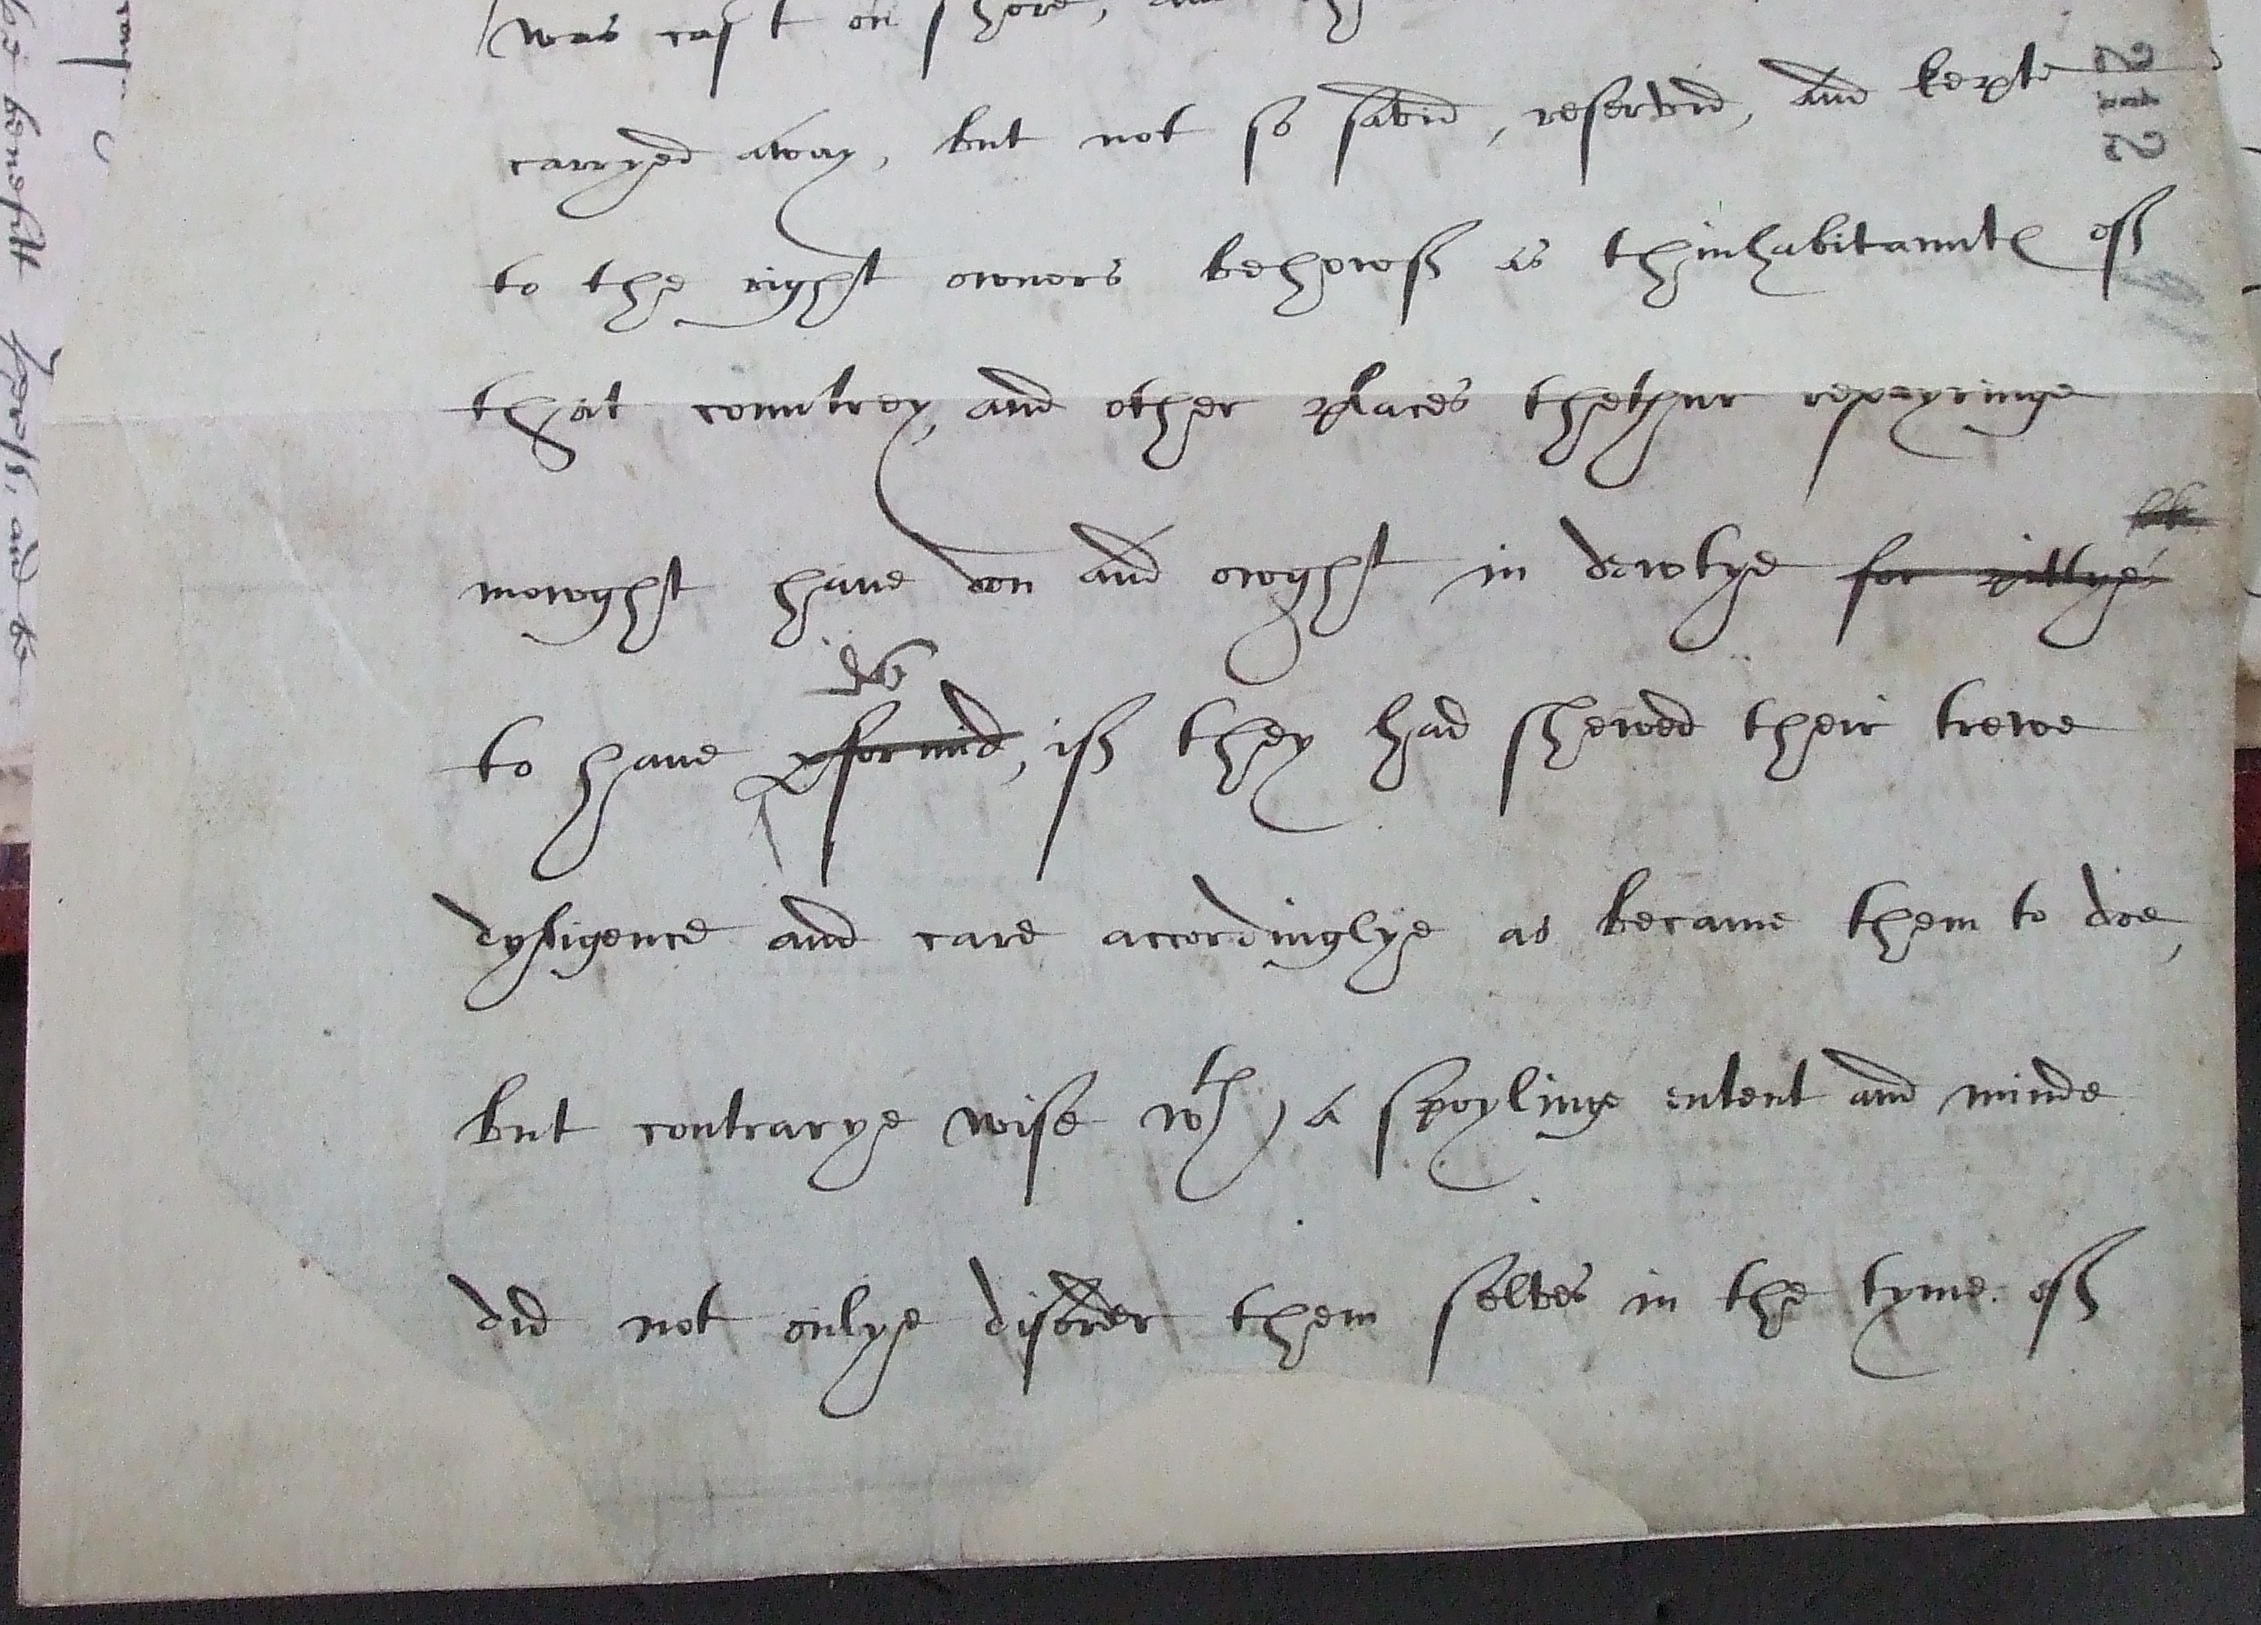 was cast on shore,
carryed away, but not so savid, reservid, and kepte
to the right owners behowff as thinhabitauntes off
that countrey, and other places thethur repayringe
mowght have don and owght in dewtye for pittye
do
to have performid, iff they had shewed their trewe
dyligence and care accordinglye as became them to doe,
but contrarye wise wth a spoylinge entent and minde
did not onlye disorder them selves in the tyme off
212
benefitt
and